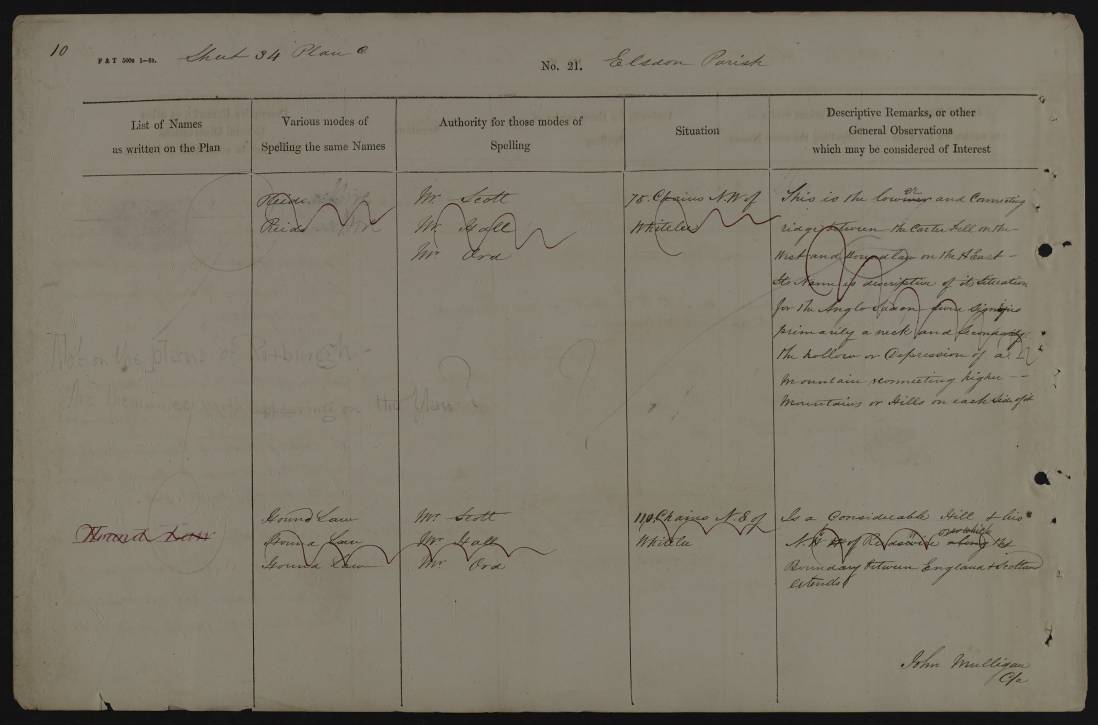 10
F & T 500s 1-60.
Sheet 34 Plan C
No. 21.
Elsdon Parish
List of Names
as written on the Plan
Various modes of
Spelling the same Names
Authority for those modes of
Spelling
Situation
Descriptive Remarks, or other
General Observations
which may be considered of Interest
Mr. Scott
75. Chains N.W. of
This is the lower and Connecting
Mr. Hall
Whitelee
ridge between the Carter Fell on the
Mr. Ord
West and Hound Law on the East -
Its Name is descriptive of its Situation
for the Anglo Saxon
primarily a neck and Secondarily
the hollow or Depression of a
Mountain connecting higher
Mountains or Hills on each side of it
the plans of
appearing on the Plan ?
Hound Law
Hound Law
Mr. Scott
110 Chains N.E of
Is a Considerable Hill & lies
Hound Law
Mr. Hall
Whitelee
N.W. of over which the
Hound Law
Mr. Ord
Boundary between England & Scotland
extends
John Mulligan
C/a